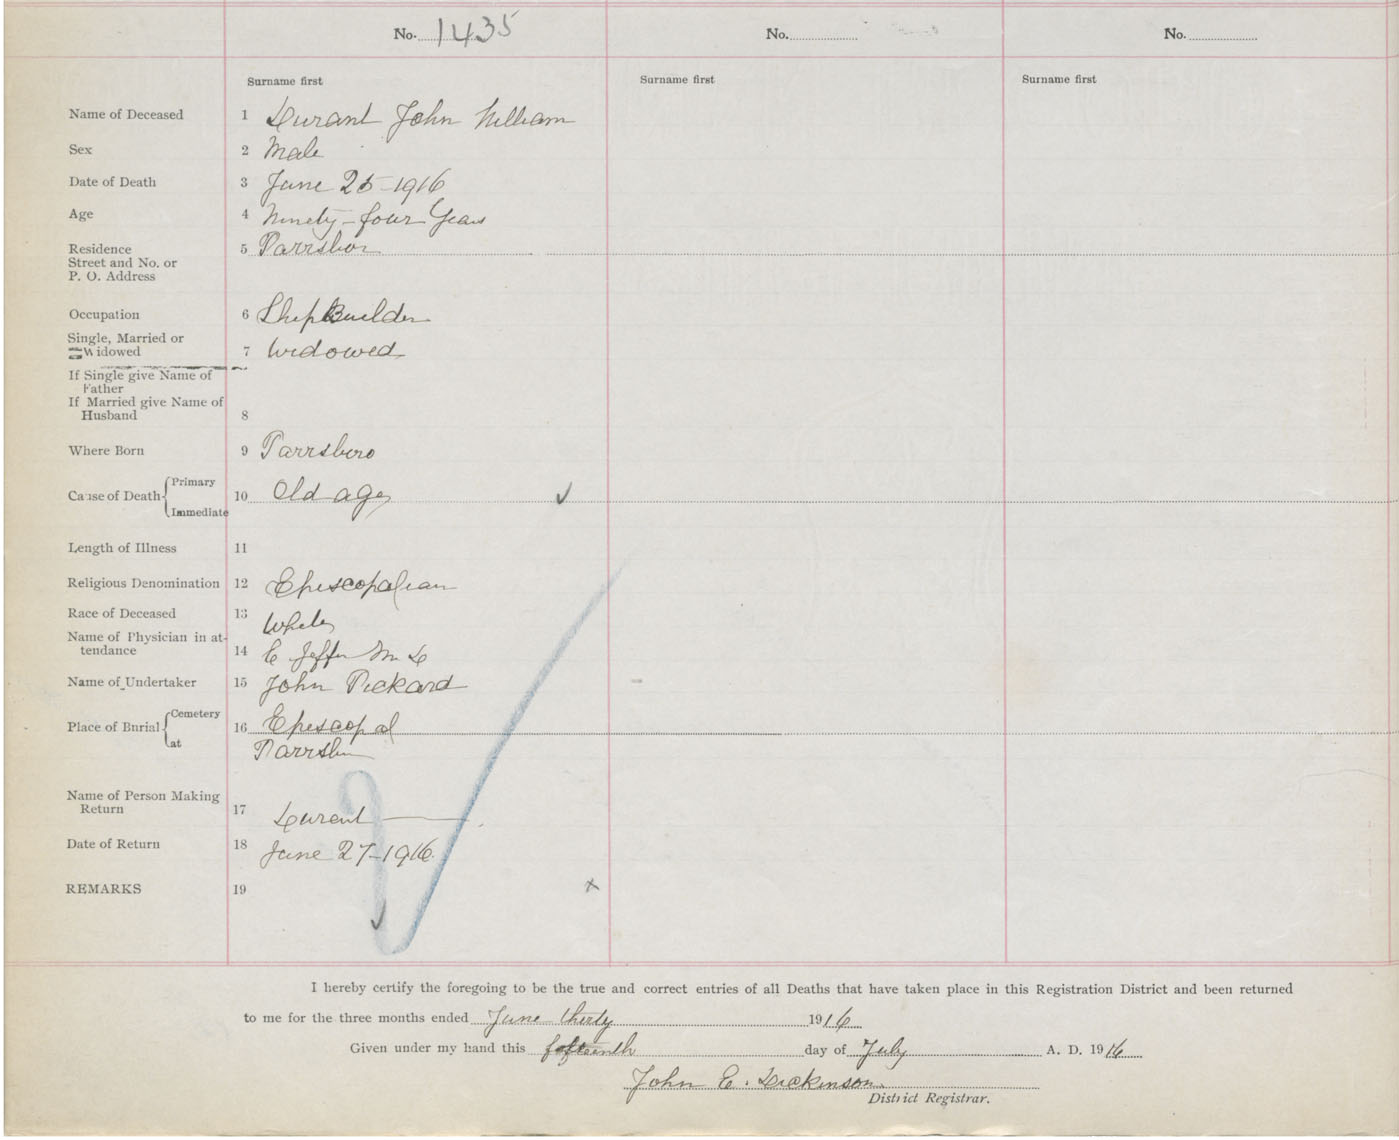 No. 1435 No. No.
Surname first Surname first Surname first
Name of Deceased 1 Durant John William
Sex 2 Male
Date of Death 3 June 25-1916
Age 4 Ninety-four Years
Residence 5 Parrsboro
Street and No. or
P. O. Address
Occupation 6 Ship Builder
Single, Married or
Widowed 7 Widowed
If Single give Name of
Father
If Married give Name of
Husband 8
Where Born 9 Parrsboro
Primary
Cause of Death 10 Old age
Immediate
Length of Illness 11
Religious Denomination 12 Episcopalian
Race of Deceased 13 White
Name of Physician in at-
tendance 14 M D
Name of Undertaker 15 John Pickard
Cemetery
Place of Burial 16 Episcopal
at Parrsboro
Name of Person Making
Return 17 Durant
Date of Return 18 June 27-1916
REMARKS 19 x
I hereby certify the foregoing to be the true and correct entries of all Deaths that have taken place in this Registration District and been returned
to me for the three months ended June thirty 1916
Given under my hand this fifteenth day of July A. D. 1916
John E. Dickinson
District Registrar.